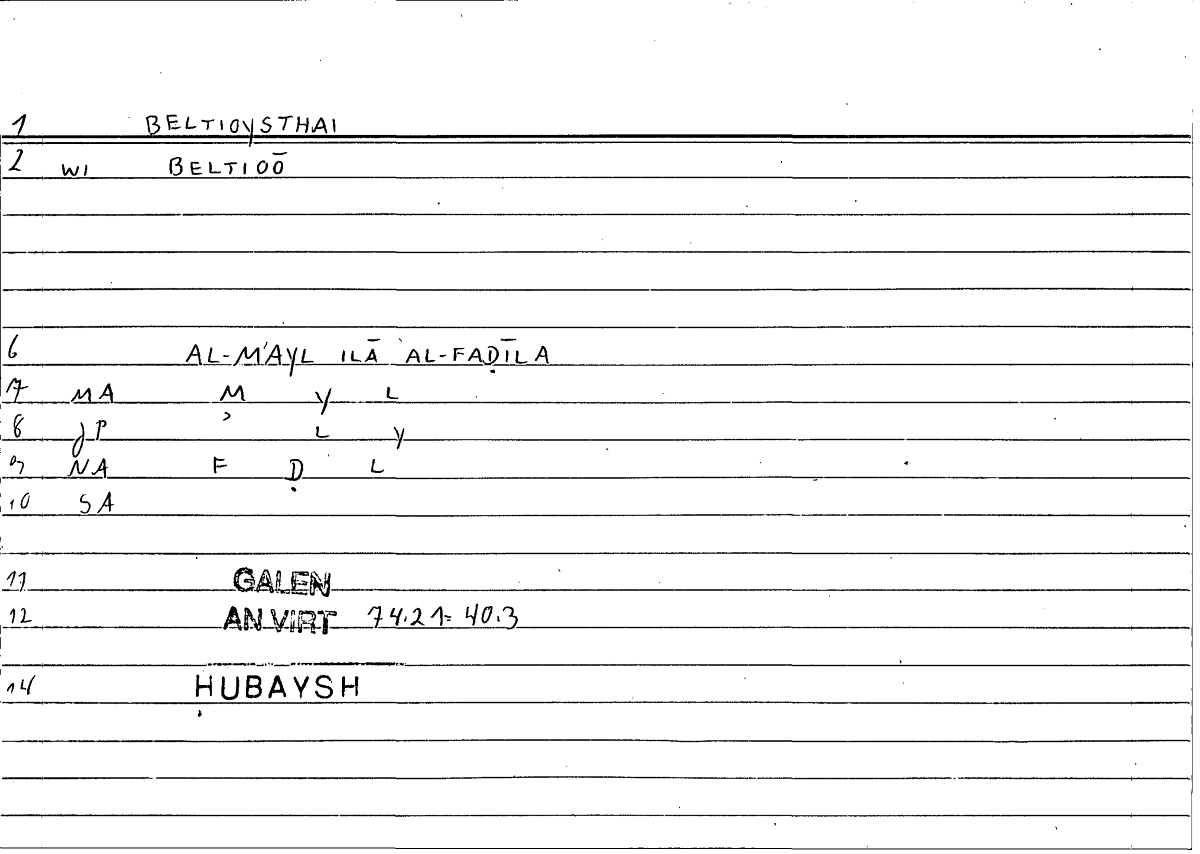 1 BELTIOYSTHAI
2 WI BELTIOŌ
6 AL-MAYL ILĀ AL-FAḌĪLA
7 MA M Y L
8 JP ʾ L Y
9 NA F Ḍ L
10 SA
11 GALEN
12 AN VIRT 74.21= 40.3
14 ḤUBAYSH